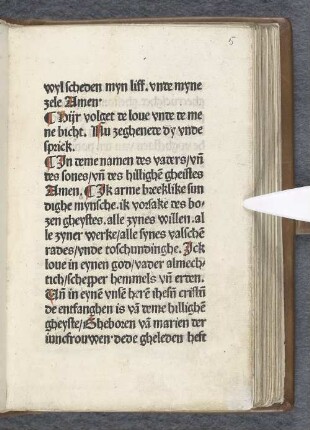 5
wyl scheden myn liff. vnde myne
zele Amen
¶ Hijr volget te loue vnde te me
ne bicht. Nu zeghenete dy vnde
sprick.
¶ In teme namen des vaders/vn̄
des sones/vn̄ des hillighē gheistes
Amen. ¶ Ik arme breklike sun
dighe mynsche. ik vorsake des bo
zen gheystes. alle zynes willen. al
le zyner werke/alle synes valschen
rades/vnde toschundinghe. Ick
loue in eynen god/vader almech⸗
tich/schepper hemmels vn̄ erden.
Vn̄ in eynē vnsē herē ihesū cristū
de entfanghen is vā deme hillighē
gheyste/Gheboren vā marien der
iuncfrouwen. dede gheleden heft